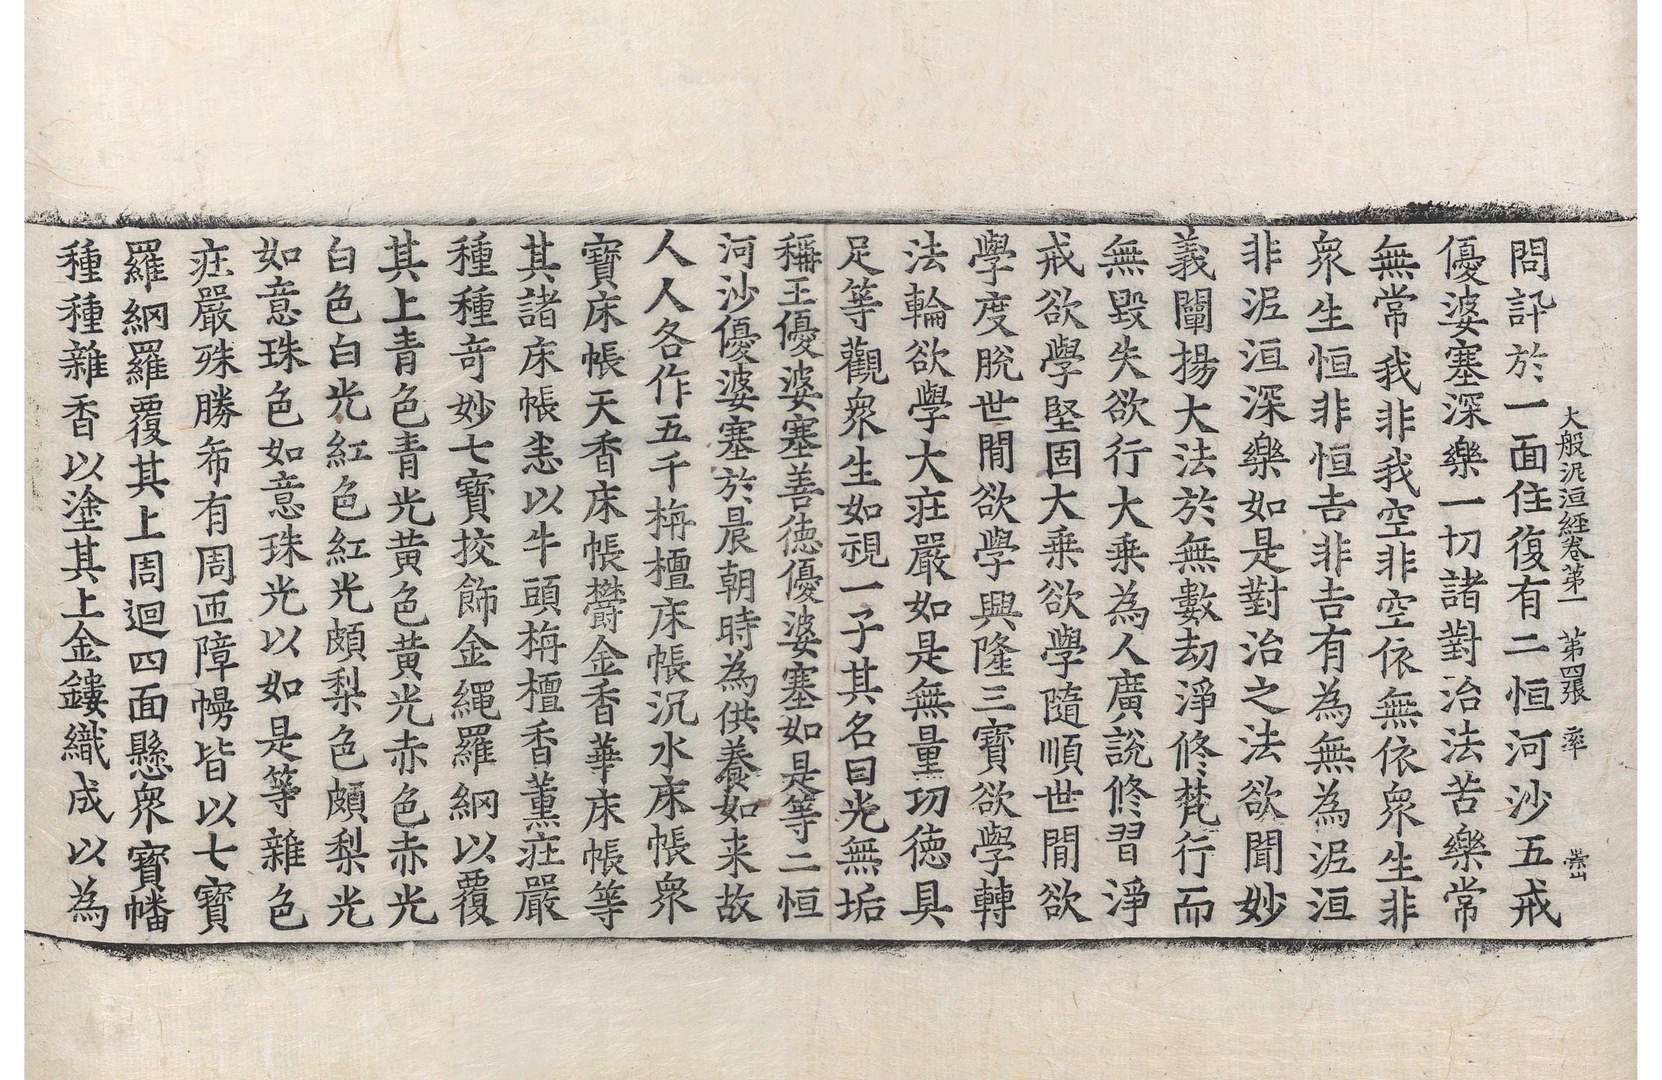 大般泥洹經卷第一 第四張 率
問訊於一面住復有二恒河沙五戒
優婆塞深樂一切諸對治法苦樂常
無常我非我空非空依無依眾生非
眾生恒非恒吉非吉有為無為泥洹
非泥洹深樂如是對治之法欲聞妙
義闡揚大法於無數劫淨修梵行而
無毀失欲行大乘為人廣說修習淨
戒欲學堅固大乘欲學隨順世間欲
學度脫世間欲學興隆三寶欲學轉
法輪欲學大莊嚴如是無量功德具
足等觀眾生如視一子其名曰光無垢
稱王優婆塞善德優婆塞如是等二恒
河沙優婆塞於晨朝時為供養如来故
人人各作五千栴檀床帳沉水床帳眾
寶床帳天香床帳欝金香華床帳等
其諸床帳恚以牛頭栴檀香薰莊嚴
種種奇妙七寶挍飾金繩羅網以覆
其上青色青光黃色黃光赤色赤光
白色白光紅色紅光頗梨色頗梨光
如意珠色如意珠光以如是等雜色
莊嚴殊勝希有周匝障幔皆以七寶
羅網羅覆其上周迴四面懸眾寶幡
種種雜香以塗其上金鏤織成以為